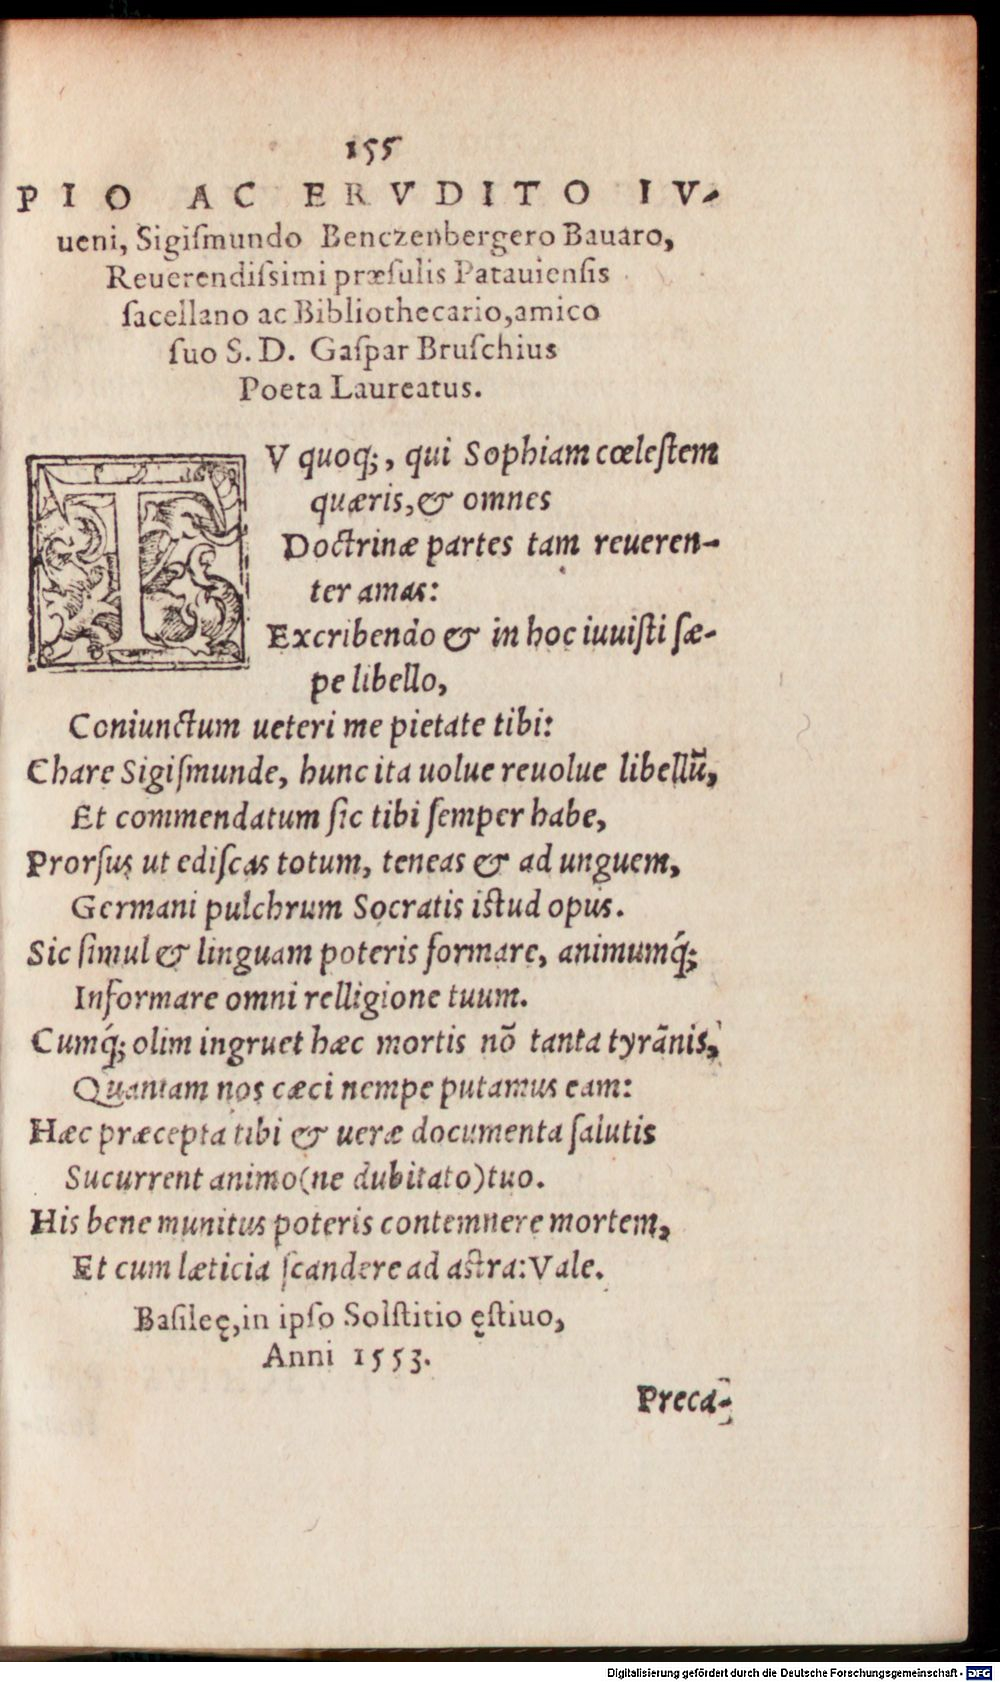 155
PIO AC ERVDITO IV-
ueni, Sigiſmundo Benczenbergero Bauaro,
Reuerendiſsimi præſulis Patauienſis
ſacellano ac Bibliothecario, amico
ſuo S. D. Gaſpar Bruſchius
Poeta Laureatus.
TV quoq;, qui Sophiam cœleſtem
quæris, & omnes
Doctrinæ partes tam reueren-
ter amas:
Excribendo & in hoc iuuiſti ſæ-
pe libello,
Coniunctum ueteri me pietate tibi:
Chare Sigiſmunde, hunc ita uolue reuolue libellũ,
Et commendatum ſic tibi ſemper habe,
Prorſus ut ediſcas totum, teneas & ad unguem,
Germani pulchrum Socratis iſtud opus.
Sic ſimul & linguam poteris formare, animumq́;
Informare omni relligione tuum.
Cumq́; olim ingruet hæc mortis nõ tanta tyrãnis,
Quantam nos cæci nempe putamus eam:
Hæc præcepta tibi & ueræ documenta ſalutis
Sucurrent animo (ne dubitato) tuo.
His bene munitus poteris contemnere mortem,
Et cum læticia ſcandere ad aſtra: Vale.
Baſileę, in ipſo Solſtitio ęſtiuo,
Anni 1553.
Preca-
Digitalisierung gefördert durch die Deutsche Forschungsgemeinschaft - DFG